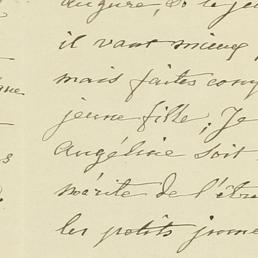 augure, si le jeu
il vaut mieux
mais faites comp
jeune fille; Je
Angéline soit
mérite de l'être
les petits